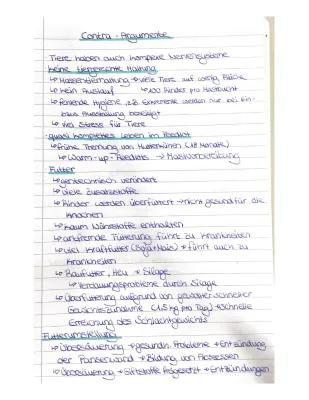 Contra - Argumente
Tiere haben auch komplexe Nervensysteme
keine tiergerechte Haltung
↳ Massentierhaltung → viele Tiere auf wenig Fläche
↳ kein Auslauf ↳ 100 Rinder pro Mastbucht
↳ fehlende Hygiene, z.B. Exkremente werden nur bei Ein-
bzw. Ausstallung beseitigt
↳ viel Stress für Tiere
quasi komplettes Leben im Feedlot
↳ frühe Trennung von Mutterkühen
↳ Warm-up-Feedlots → Mastvorbereitung
Futter
↳ gentechnisch verändert
↳ viele Zusatzstoffe
↳ Rinder werden überfüttert → nicht gesund für die
Knochen
↳ kaum Nährstoffe enthalten
↳ artfremde Fütterung führt zu Krankheiten
↳ viel Kraftfutter (Soja + Mais) → führt auch zu
Krankheiten
↳ Raufutter, Heu + Silage
↳ Verdauungsprobleme durch Silage
↳ Überfütterung aufgrund von gewollter schneller
Gewichtszunahme (1,5 kg pro Tag) → schnelle
Erreichung des Schlachtgewichts
Futterumstellung
↳ Übersäuerung → gesundh. Probleme → Entzündung
der Pansenwand → Bildung von Abszessen
↳ Übersäuerung → Giftstoffe freigesetzt → Entzündungen